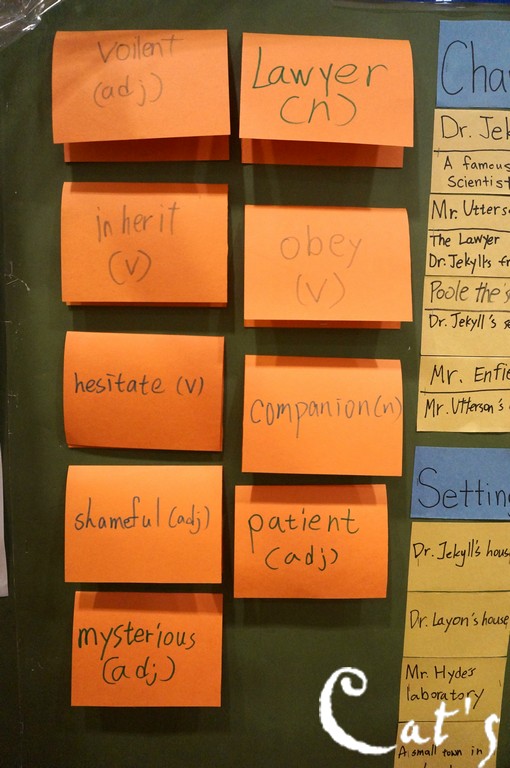 voilent
(adj)
Lawyer
(n)
inherit
(v)
obey
(v)
hesitate (v)
companion(n)
shameful (adj)
patient
(adj)
mysterious
(adj)
Cha
Dr. Jek
A famous
Scientist
Mr. Utters
The Lawyer
Dr. Jekylls fr
Poole the s
Dr. Jekyll's s
Mr. Enfie
Mr. Utterson's
Setting
Dr. Jekyll's hous
Dr. Layon's house
Mr. Hyde's
laboratory
A small town in
Cat's